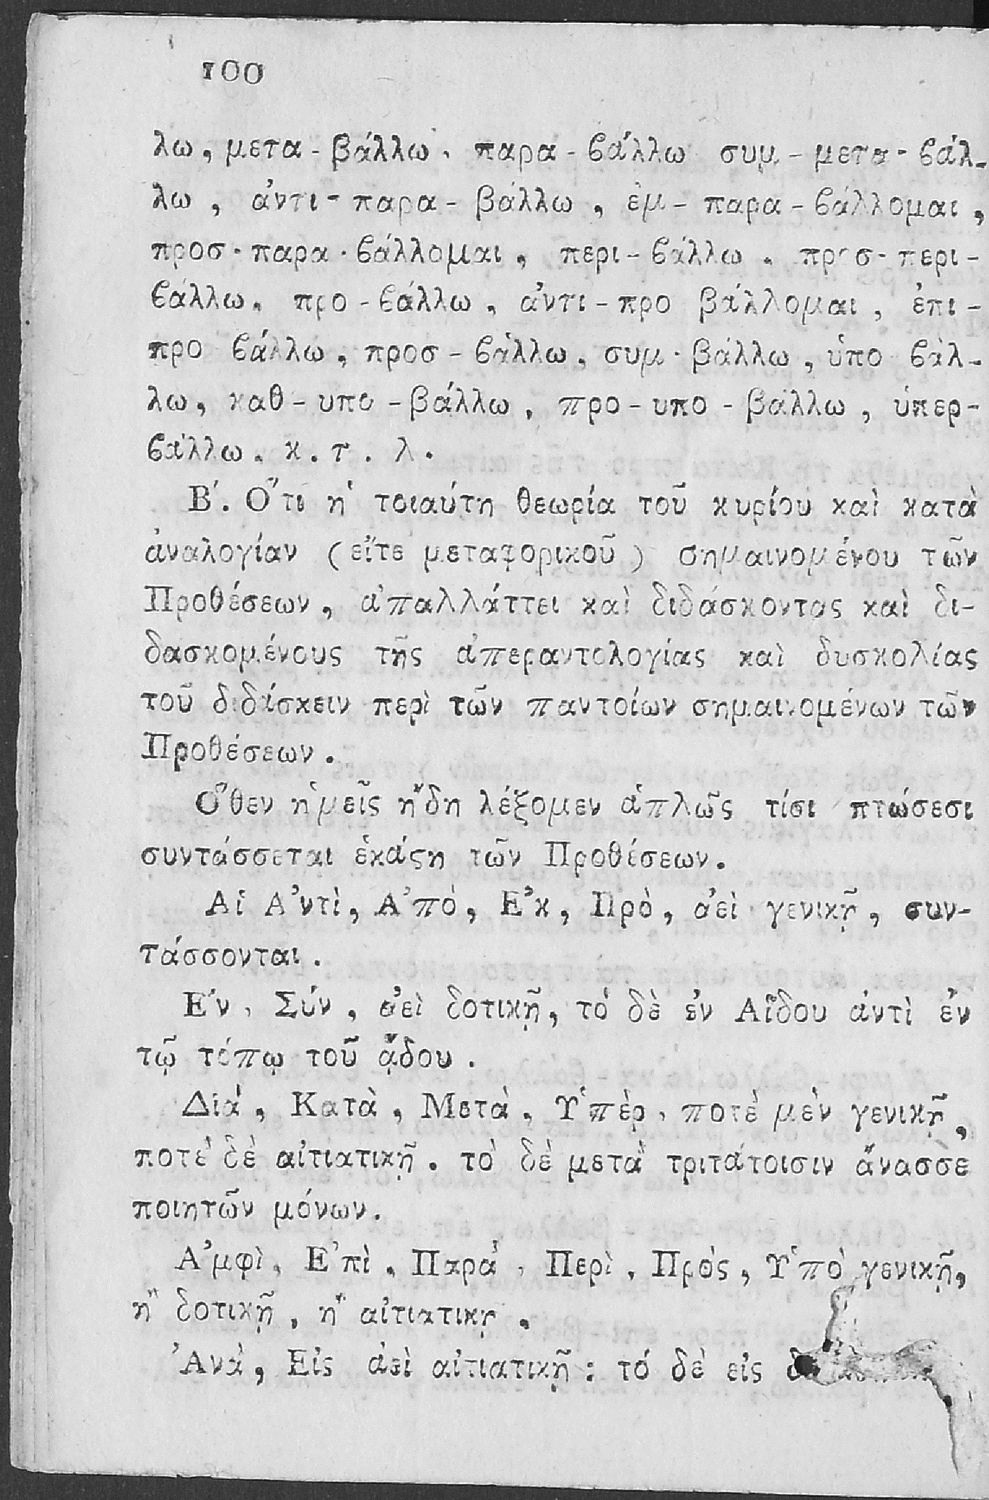 100
λω, μετα-βάλλω, παρα-ϐάλλω συμ-μετα-ϐάλ-
λω, ἀντι-παρα-βάλλω, ἐμ-παρα-ϐάλλομαι,
προσ-παρα-ϐάλλομαι, περι-ϐάλλω, προσ-περι-
ϐάλλω, προ-ϐάλλω, ἀντι-προ βάλλομαι, ἐπι-
προ ϐάλλω, προσ-ϐάλλω, συμ-βάλλω, ὑπο ϐάλ-
λω, καθ-υπο-βάλλω, προ-υπο-βάλλω, ὑπερ-
ϐάλλω. κ. τ. λ.
Β΄. Ὅτι ἡ τοιαύτη θεωρία τοῦ κυρίου καὶ κατὰ
ἀναλογίαν (εἴτε μεταφορικοῦ) σημαινομένου τῶν
Προθέσεων, ἀπαλλάττει καὶ διδάσκοντας καὶ δι-
δασκομένους τῆς ἀπεραντολογίας καὶ δυσκολίας
τοῦ διδάσκειν περὶ τῶν παντοίων σημαινομένων τῶν
Προθέσεων.
Ὅθεν ἡμεῖς ἤδη λέξομεν ἁπλῶς τίσι πτώσεσι
συντάσσεται ἑκάϛη τῶν Προθέσεων.
Αἱ Ἀντὶ, Ἀπὸ, Ἐκ, Πρὸ, ἀεὶ γενικῇ, συν-
τάσσονται.
Ἐν, Σύν, ἀεὶ δοτικῇ, τὸ δὲ ἐν Αἵδου ἀντὶ ἐν
τῷ τόπῳ τοῦ ᾅδου.
Διὰ, Κατὰ, Μετὰ, Ὑπὲρ, ποτὲ μὲν γενικῇ,
ποτὲ δὲ αἰτιατικῇ. τὸ δὲ μετὰ τριτάτοισιν ἄνασσε
ποιητῶν μόνων.
Ἀμφὶ, Ἐπὶ, Παρὰ, Περὶ, Πρὸς, Ὑπὸ γενικῇ,
ἢ δοτικῇ, ἢ αἰτιατικῇ.
Ἀνὰ, Εἰς ἀεὶ αἰτιατικῇ: τὸ δὲ εἰς